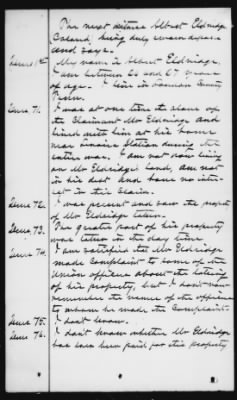 The next witness Albert Eldridge
Colored, being duly sworn deposes
and says.
Item 1st My name is Albert Eldridge.
I am between 65 and 67 years
of age. I live in Lauman County
Item 71. I was at one time the slave of
the Claimant Mr Eldridge and
lived with him at his home
near Station during the
entire war. I am not now living
on Mr Eldridge land, am not
in his debt and have no inter-
est in this claim.
Item 72. I was present and saw the most
of Mr Eldridge taken.
Item 73. The greater part of his property
was taken in the day time.
Item 74. I am satisfied that Mr Eldridge
made Complaint to some of the
Union officers about the taking
of his property, but I don't now
remember the names of the officers
to whom he made the Complaint.
Item 75. I don't know.
Item 76. I don't know whether Mr Eldridge
has ever been paid for this property